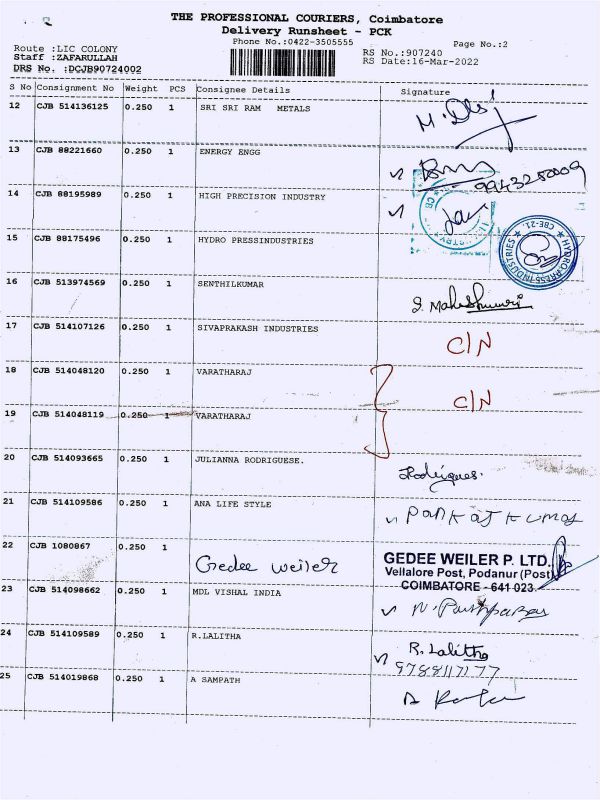 THE PROFESSIONAL COURIERS, Coimbatore
Delivery Runsheet - PCK
Phone No.:0422-3505555
Page No.:2
Route :LIC COLONY
Staff :ZAFARULLAH
DRS No. :DCJB90724002
RS No.:907240
RS Date:16-Mar-2022
S No Consignment No Weight PCS Consignee Details Signature
12 CJB 514136125 0.250 1 SRI SRI RAM METALS
13 CJB 88221660 0.250 1 ENERGY ENGG
14 CJB 88195989 0.250 1 HIGH PRECISION INDUSTRY
15 CJB 88175496 0.250 1 HYDRO PRESSINDUSTRIES
HYDRO PRESS INDUSTRIES ★ CBE-21. ★
16 CJB 513974569 0.250 1 SENTHILKUMAR
S. Maheshwari
17 CJB 514107126 0.250 1 SIVAPRAKASH INDUSTRIES
C/N
18 CJB 514048120 0.250 1 VARATHARAJ
C/N
19 CJB 514048119 0.250 1 VARATHARAJ
20 CJB 514093665 0.250 1 JULIANNA RODRIGUESE.
Rodrigues.
21 CJB 514109586 0.250 1 ANA LIFE STYLE
PANKAJ KUMAR
22 CJB 1080867 0.250 1 Gedee weiler
GEDEE WEILER P. LTD.
Vellalore Post, Podanur (Post)
COIMBATORE - 641 023
23 CJB 514098662 0.250 1 MDL VISHAL INDIA
24 CJB 514109589 0.250 1 R.LALITHA
R. Lalitha
9788117177
25 CJB 514019868 0.250 1 A SAMPATH